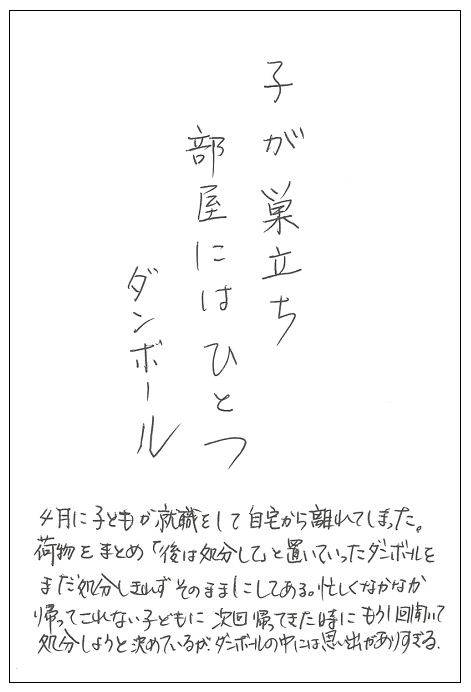 子が巣立ち
部屋にはひとつ
ダンボール
4月に子どもが就職をして自宅から離れてしまった。
荷物をまとめ「後は処分して」と置いていったダンボールを
まだ処分しきれずそのままにしてある。忙しくなかなか
帰ってこれない子どもに次回帰ってきた時にもう1回開いて
処分しようと決めているが、ダンボールの中には思い出がありすぎる.